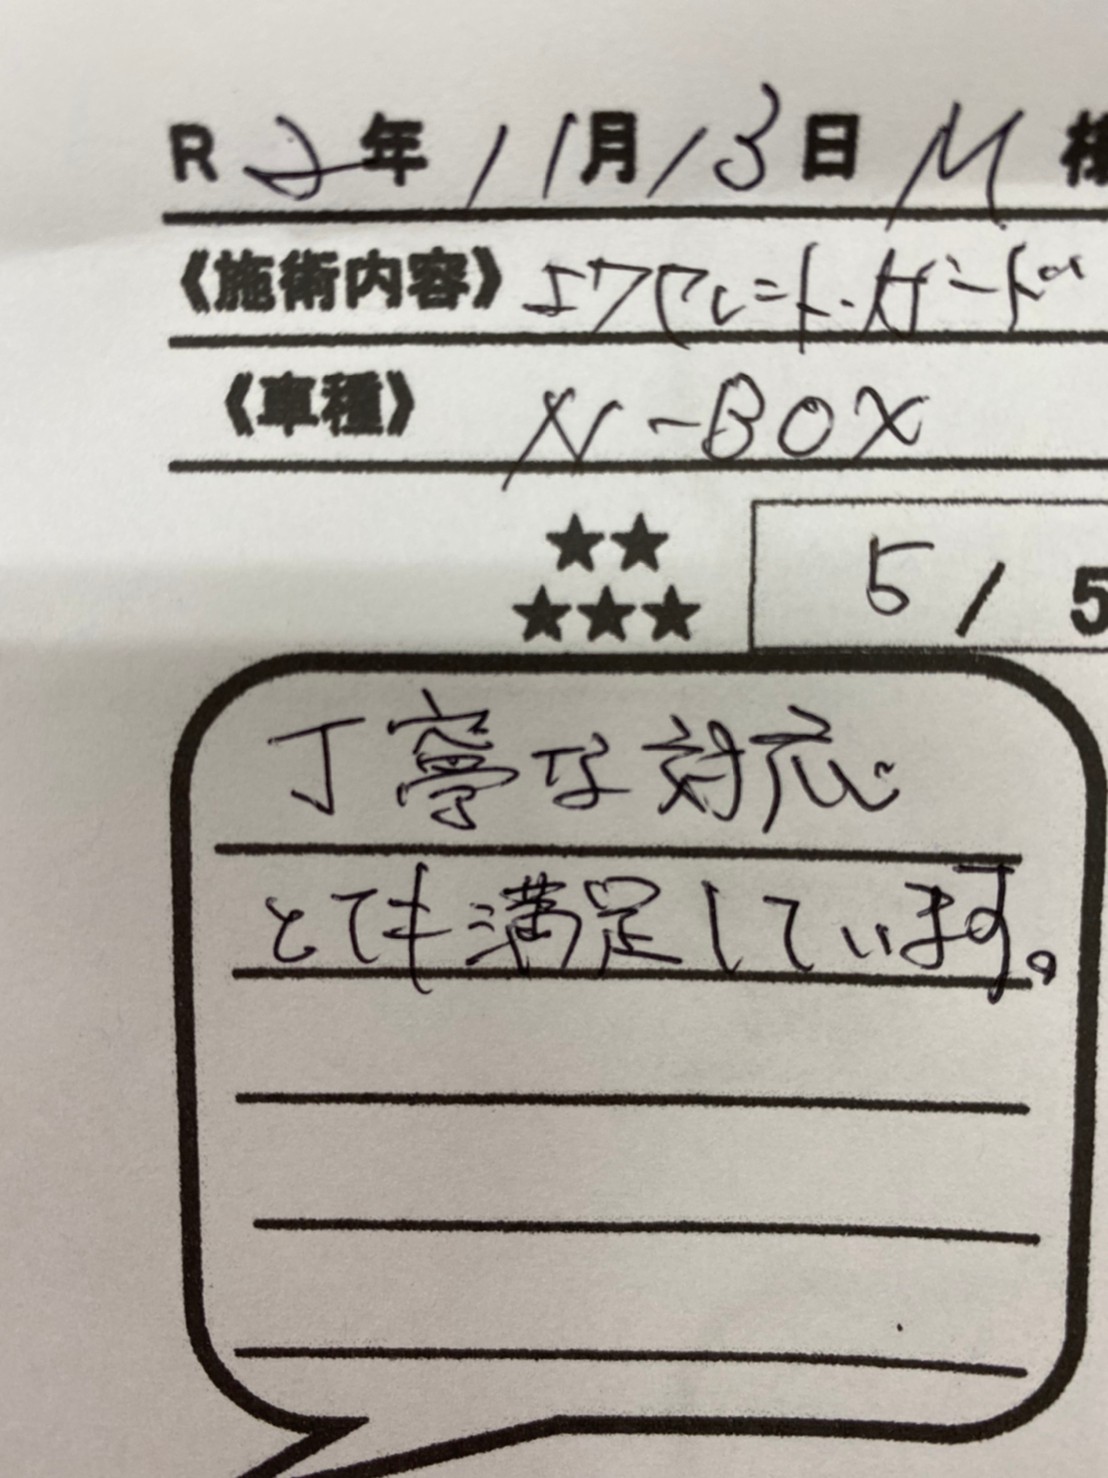 R2年11月13日 M 様
《施術内容》 エクセレント・ガード
《車種》 N-BOX
★★
★★★
5/5
丁寧な対応
とても満足しています。